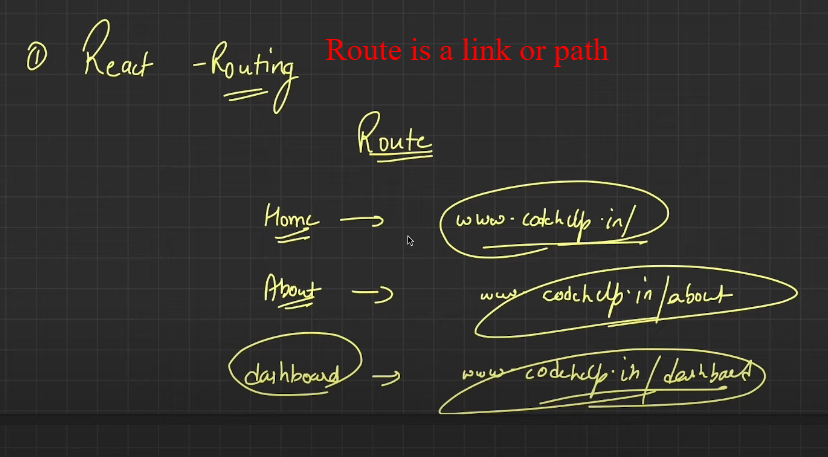 ① React - Routing Route is a link or path
Route
Home → www.codehelp.in/
About → www. codehelp.in/about
dashboard → www. codehelp.in/dashboard